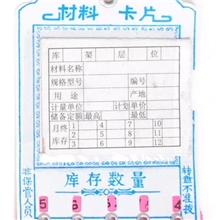 材料 卡片
库 架 层 位
材料名称
规格型号 编号
用途 产地
计量单位 计划单价
储备定额 最高 最低
月终 1 4 7 10
2 5 8 11
库存 3 6 9 12
非保管人员
转盘不准拨
库存数量
5 1 0 1 4